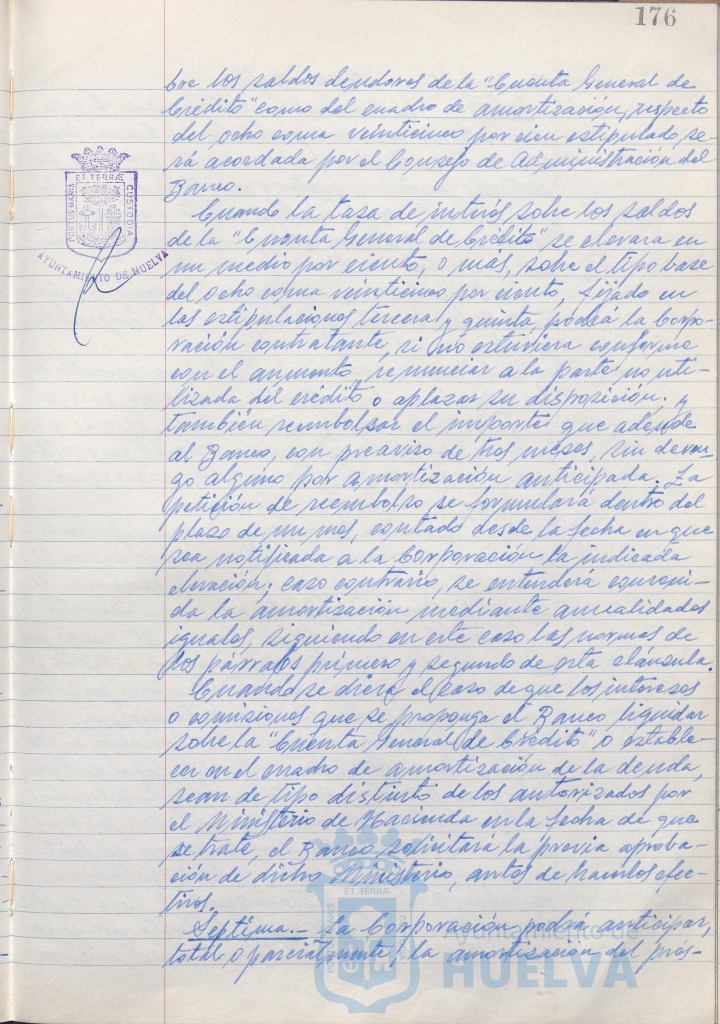 176
bre los saldos deudores de la "Cuenta General de
Crédito" como del cuadro de amortización, respecto
del ocho coma veinticinco por cien estipulado se-
rá acordada por el Consejo de Administración del
Banco.
Cuando la tasa de interés sobre los saldos
de la "Cuenta General de Crédito" se elevara en
un medio por ciento, o más, sobre el tipo base
del ocho coma veinticinco por ciento, fijado en
las estipulaciones tercera y quinta, podrá la Corpo-
ración contratante, si no estuviera conforme
con el aumento, renunciar a la parte no uti-
lizada del crédito o aplazar su disposición; y
también reembolsar el importe que adeude
al Banco, con preaviso de tres meses, sin deven-
go alguno por amortización anticipada. La
petición de reembolso se formulará dentro del
plazo de un mes, contado desde la fecha en que
sea notificada a la Corporación la indicada
elevación; caso contrario, se entenderá conveni-
da la amortización mediante anualidades
iguales, siguiendo en este caso las normas de
los párrafos primero y segundo de esta cláusula.
Cuando se diera el caso de que los intereses
o comisiones que se proponga el Banco liquidar
sobre la "Cuenta General de Crédito" o estable-
cer en el cuadro de amortización de la deuda,
sean de tipo distinto de los autorizados por
el Ministerio de Hacienda en la fecha de que
se trate, el Banco solicitará la previa aproba-
ción de dicho Ministerio, antes de hacerlos efec-
tivos.
Septima.- La Corporación podrá anticipar,
total o parcialmente la amortización del prés-
ET TERRÆ
PORTUS MARIS
CUSTODIA
AYUNTAMIENTO DE HUELVA
ET TERRÆ
Ayuntamiento de
HUELVA